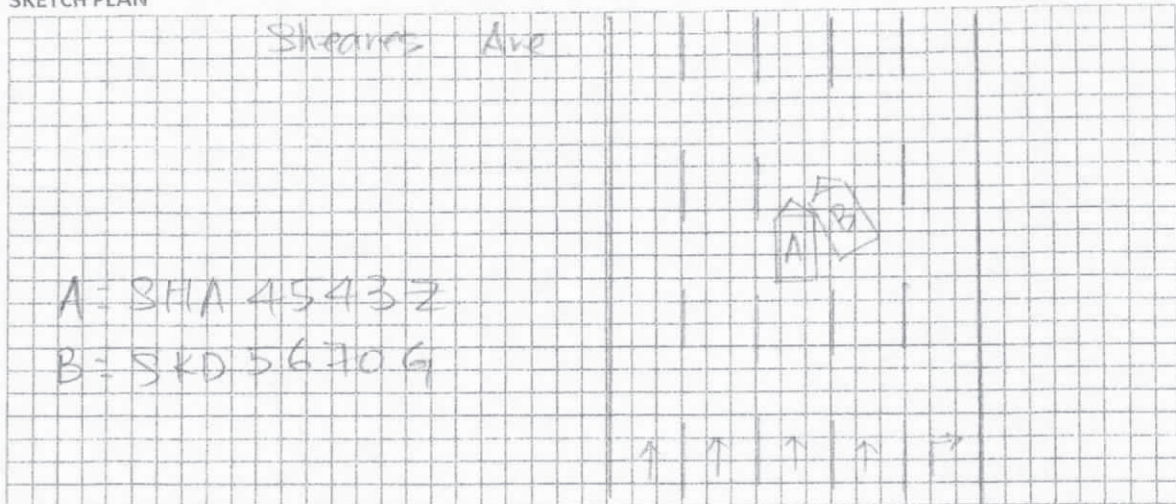 SKETCH PLAN
Sheares Ave
A
B
A = SHA 4543Z
B = SKD 5670G